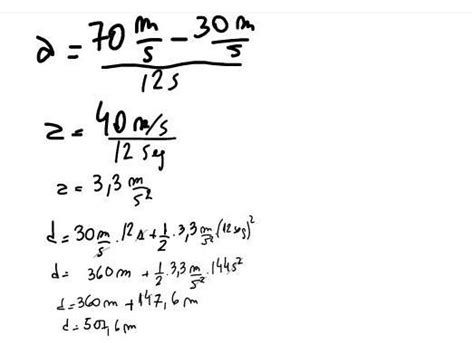 a = (70 m/s - 30 m/s) / 12 s
a = 40 m/s / 12 seg
a = 3,3 m/s²
d = 30 m/s . 12 s + 1/2 . 3,3 m/s² (12 seg)²
d = 360 m + 1/2 . 3,3 m/s² . 144 s²
d = 360 m + 147,6 m
d = 507,6 m